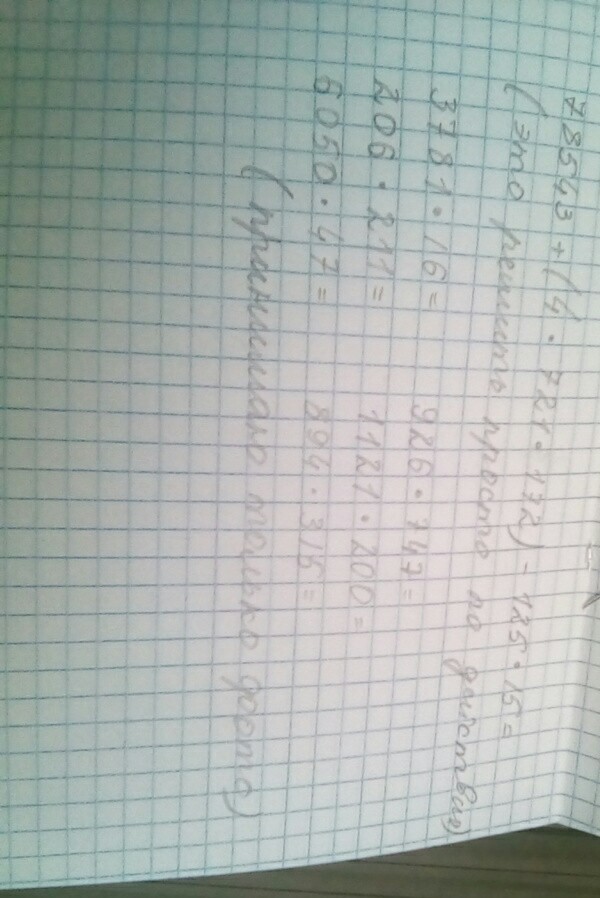 78543 + (4 · 721 · 172) - 125 · 15 =
(это решить просто по действия)
3781 · 16 = 926 · 747 =
206 · 211 = 1121 · 200 =
6050 · 47 = 894 · 315 =
(принимаю только фото)